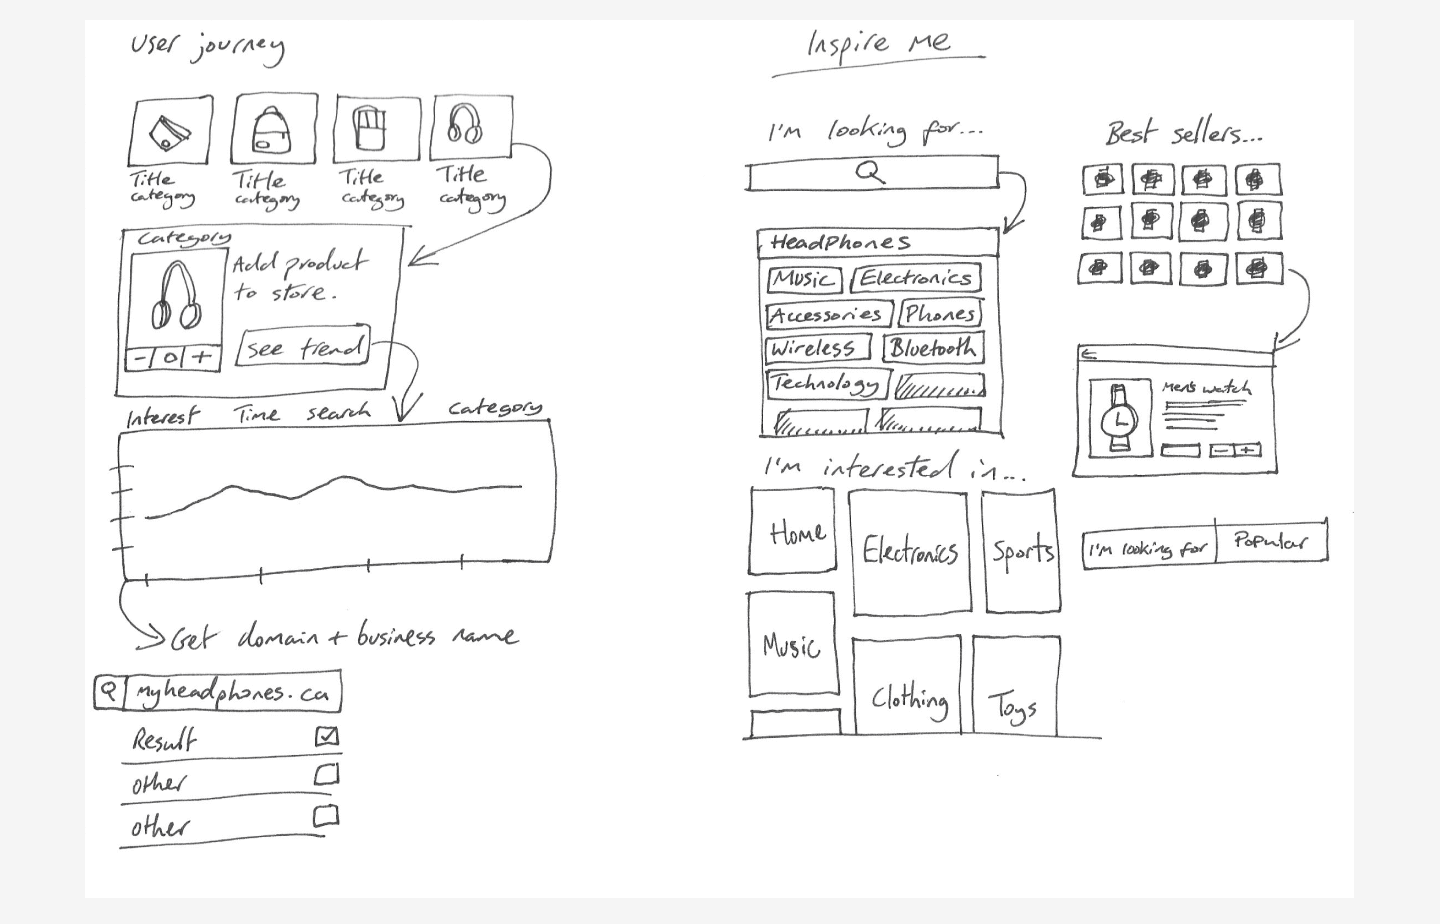 User journey
Title
category
Title
category
Title
category
Title
category
Category
Add product
to store.
- 0 +
See trend
Interest Time search category
Get domain + business name
myheadphones.ca
Result
other
other
Inspire me
I'm looking for...
Headphones
Music Electronics
Accessories Phones
Wireless Bluetooth
Technology
I'm interested in...
Home
Electronics
Sports
Music
Clothing
Toys
Best sellers...
Men's watch
- +
I'm looking for Popular